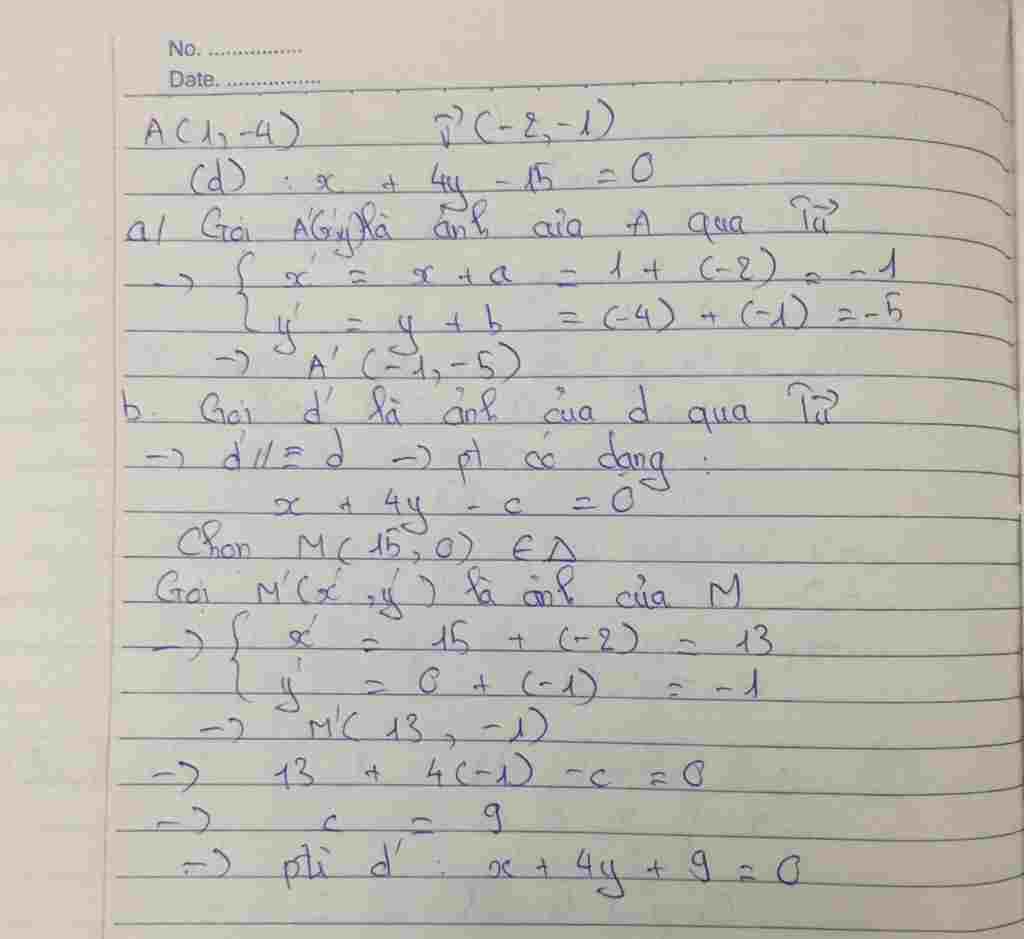 No. ................
Date. ................
A(1, -4) v⃗(-2, -1)
(d) : x + 4y - 15 = 0
a/ Gọi A'(x'y') là ảnh của A qua Tv⃗
→ { x' = x + a = 1 + (-2) = -1
y' = y + b = (-4) + (-1) = -5
→ A' (-1, -5)
b. Gọi d' là ảnh của d qua Tv⃗
→ d' // ≡ d → pt có dạng :
x + 4y - c = 0
Chọn M( 15, 0) ∈ Δ
Gọi M'(x' , y') là ảnh của M
→ { x' = 15 + (-2) = 13
y' = 0 + (-1) = -1
→ M'( 13, -1)
→ 13 + 4(-1) - c = 0
→ c = 9
→ d' : x + 4y + 9 = 0